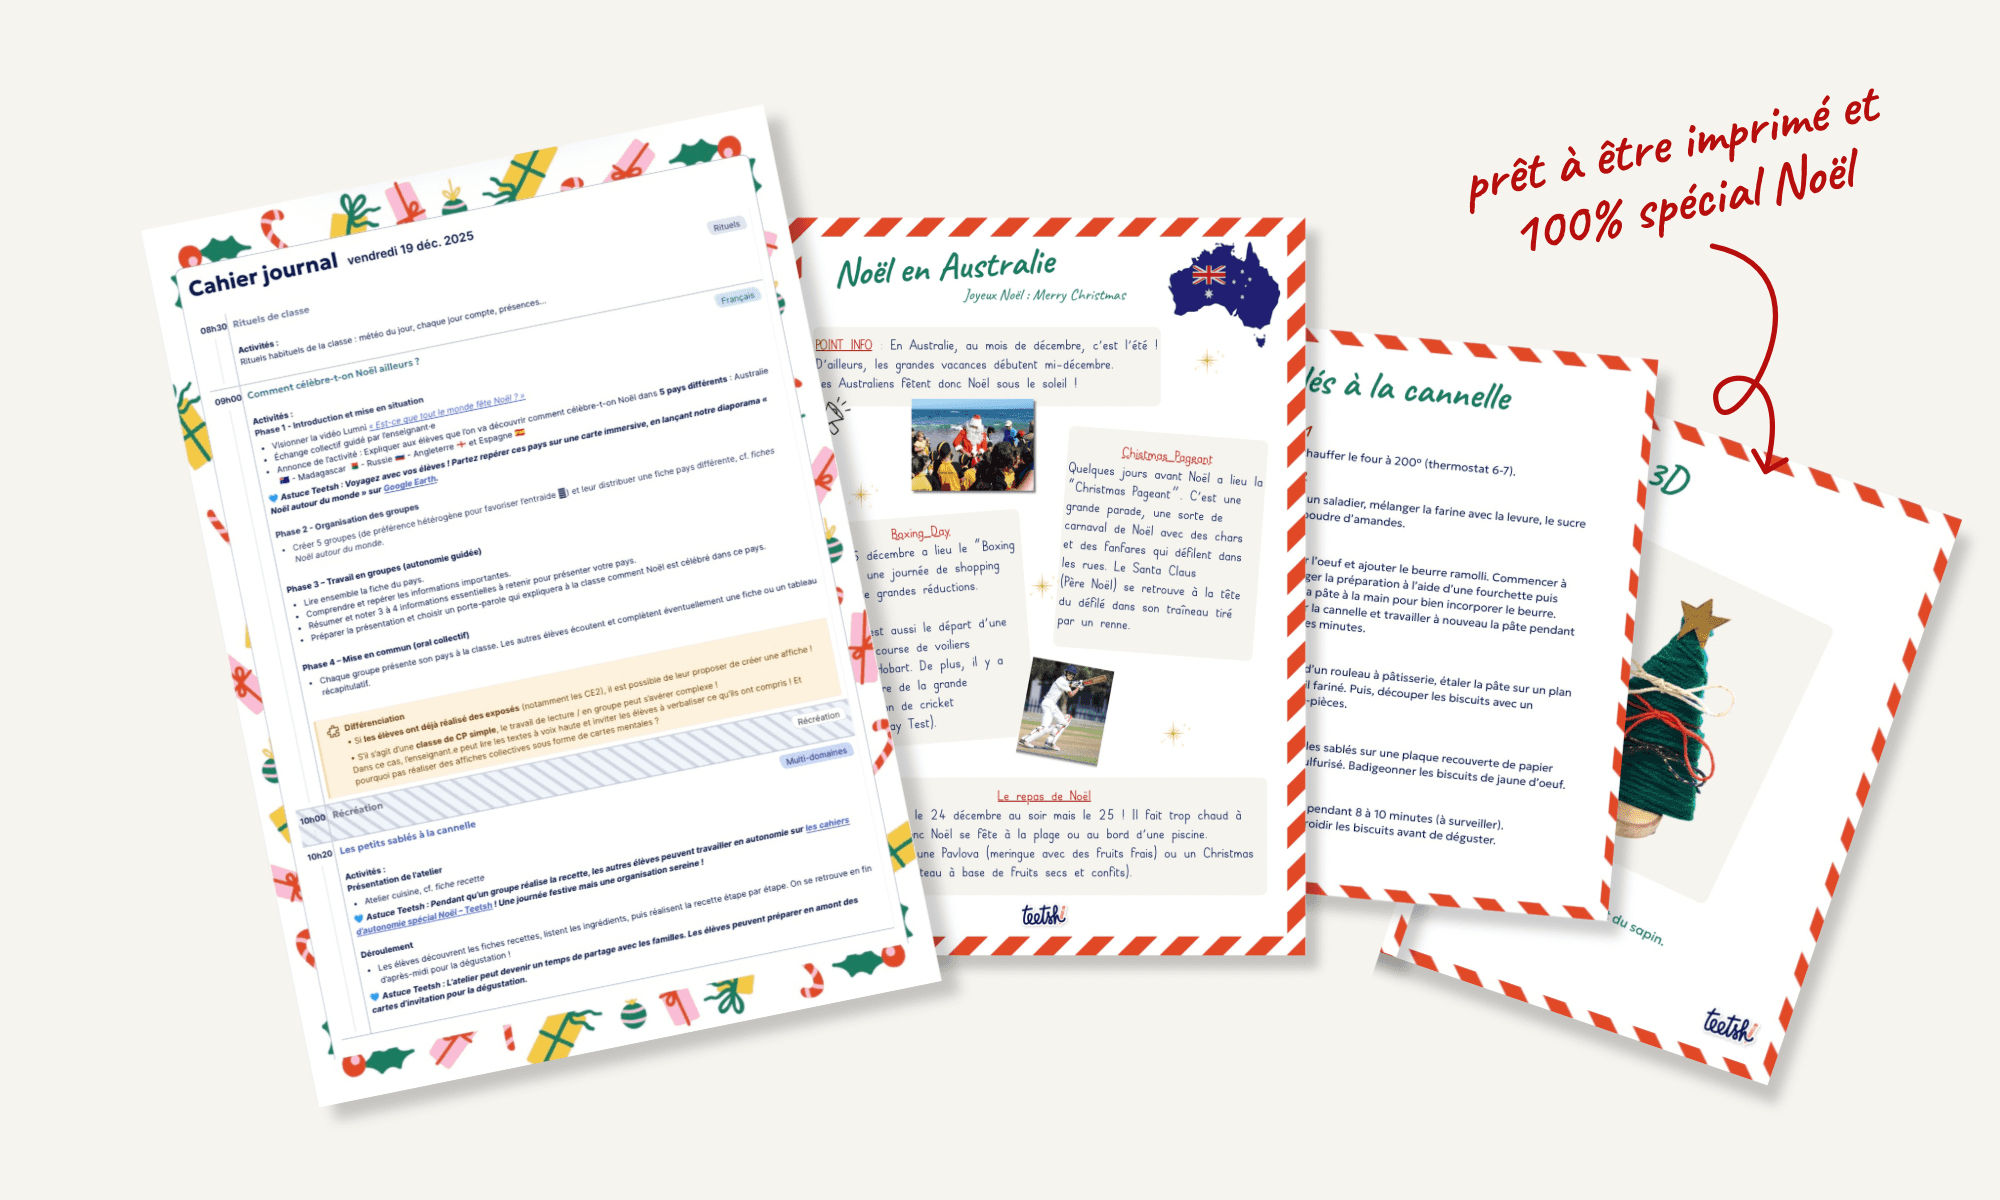 prêt à être imprimé et
100% spécial Noël
Cahier journal vendredi 19 déc. 2025
Rituels
08h30 Rituels de classe
Activités :
Rituels habituels de la classe : météo du jour, chaque jour compte, présences...
Français
09h00 Comment célèbre-t-on Noël ailleurs ?
Activités :
Phase 1 - Introduction et mise en situation
• Visionner la vidéo Lumni « Est-ce que tout le monde fête Noël ? »
• Échange collectif guidé par l'enseignant·e
• Annonce de l'activité : Expliquer aux élèves que l'on va découvrir comment célèbre-t-on Noël dans 5 pays différents : Australie
- Madagascar - Russie - Angleterre et Espagne
Astuce Teetsh : Voyagez avec vos élèves ! Partez repérer ces pays sur une carte immersive, en lançant notre diaporama «
Noël autour du monde » sur Google Earth.
Phase 2 - Organisation des groupes
• Créer 5 groupes (de préférence hétérogène pour favoriser l'entraide ) et leur distribuer une fiche pays différente, cf. fiches
Noël autour du monde.
Phase 3 – Travail en groupes (autonomie guidée)
• Lire ensemble la fiche du pays.
• Comprendre et repérer les informations importantes.
• Résumer et noter 3 à 4 informations essentielles à retenir pour présenter votre pays.
• Préparer la présentation et choisir un porte-parole qui expliquera à la classe comment Noël est célébré dans ce pays.
Phase 4 – Mise en commun (oral collectif)
• Chaque groupe présente son pays à la classe. Les autres élèves écoutent et complètent éventuellement une fiche ou un tableau
récapitulatif.
Différenciation
• Si les élèves ont déjà réalisé des exposés (notamment les CE2), il est possible de leur proposer de créer une affiche !
• S'il s'agit d'une classe de CP simple, le travail de lecture / en groupe peut s'avérer complexe !
Dans ce cas, l'enseignant.e peut lire les textes à voix haute et inviter les élèves à verbaliser ce qu'ils ont compris ! Et
pourquoi pas réaliser des affiches collectives sous forme de cartes mentales ?
Récréation
10h00 Récréation
Multi-domaines
10h20 Les petits sablés à la cannelle
Activités :
Présentation de l'atelier
• Atelier cuisine, cf. fiche recette
Astuce Teetsh : Pendant qu'un groupe réalise la recette, les autres élèves peuvent travailler en autonomie sur les cahiers
d'autonomie spécial Noël - Teetsh ! Une journée festive mais une organisation sereine !
Déroulement
• Les élèves découvrent les fiches recettes, listent les ingrédients, puis réalisent la recette étape par étape. On se retrouve en fin
d'après-midi pour la dégustation !
Astuce Teetsh : L'atelier peut devenir un temps de partage avec les familles. Les élèves peuvent préparer en amont des
cartes d'invitation pour la dégustation.
Noël en Australie
Joyeux Noël : Merry Christmas
POINT INFO : En Australie, au mois de décembre, c'est l'été !
D'ailleurs, les grandes vacances débutent mi-décembre.
es Australiens fêtent donc Noël sous le soleil !
Chistmas Pageant
Quelques jours avant Noël a lieu la
"Christmas Pageant". C'est une
grande parade, une sorte de
carnaval de Noël avec des chars
et des fanfares qui défilent dans
les rues. Le Santa Claus
(Père Noël) se retrouve à la tête
du défilé dans son traîneau tiré
par un renne.
Boxing Day
décembre a lieu le "Boxing
une journée de shopping
grandes réductions.
est aussi le départ d'une
course de voiliers
Hobart. De plus, il y a
re de la grande
on de cricket
ay Test).
Le repas de Noël
le 24 décembre au soir mais le 25 ! Il fait trop chaud à
nc Noël se fête à la plage ou au bord d'une piscine.
une Pavlova (meringue avec des fruits frais) ou un Christmas
teau à base de fruits secs et confits).
teetsh
lés à la cannelle
hauffer le four à 200° (thermostat 6-7).
un saladier, mélanger la farine avec la levure, le sucre
oudre d'amandes.
r l'oeuf et ajouter le beurre ramolli. Commencer à
ger la préparation à l'aide d'une fourchette puis
a pâte à la main pour bien incorporer le beurre.
r la cannelle et travailler à nouveau la pâte pendant
es minutes.
d'un rouleau à pâtisserie, étaler la pâte sur un plan
il fariné. Puis, découper les biscuits avec un
-pièces.
les sablés sur une plaque recouverte de papier
ulfurisé. Badigeonner les biscuits de jaune d'oeuf.
pendant 8 à 10 minutes (à surveiller).
roidir les biscuits avant de déguster.
3D
du sapin.
teetsh